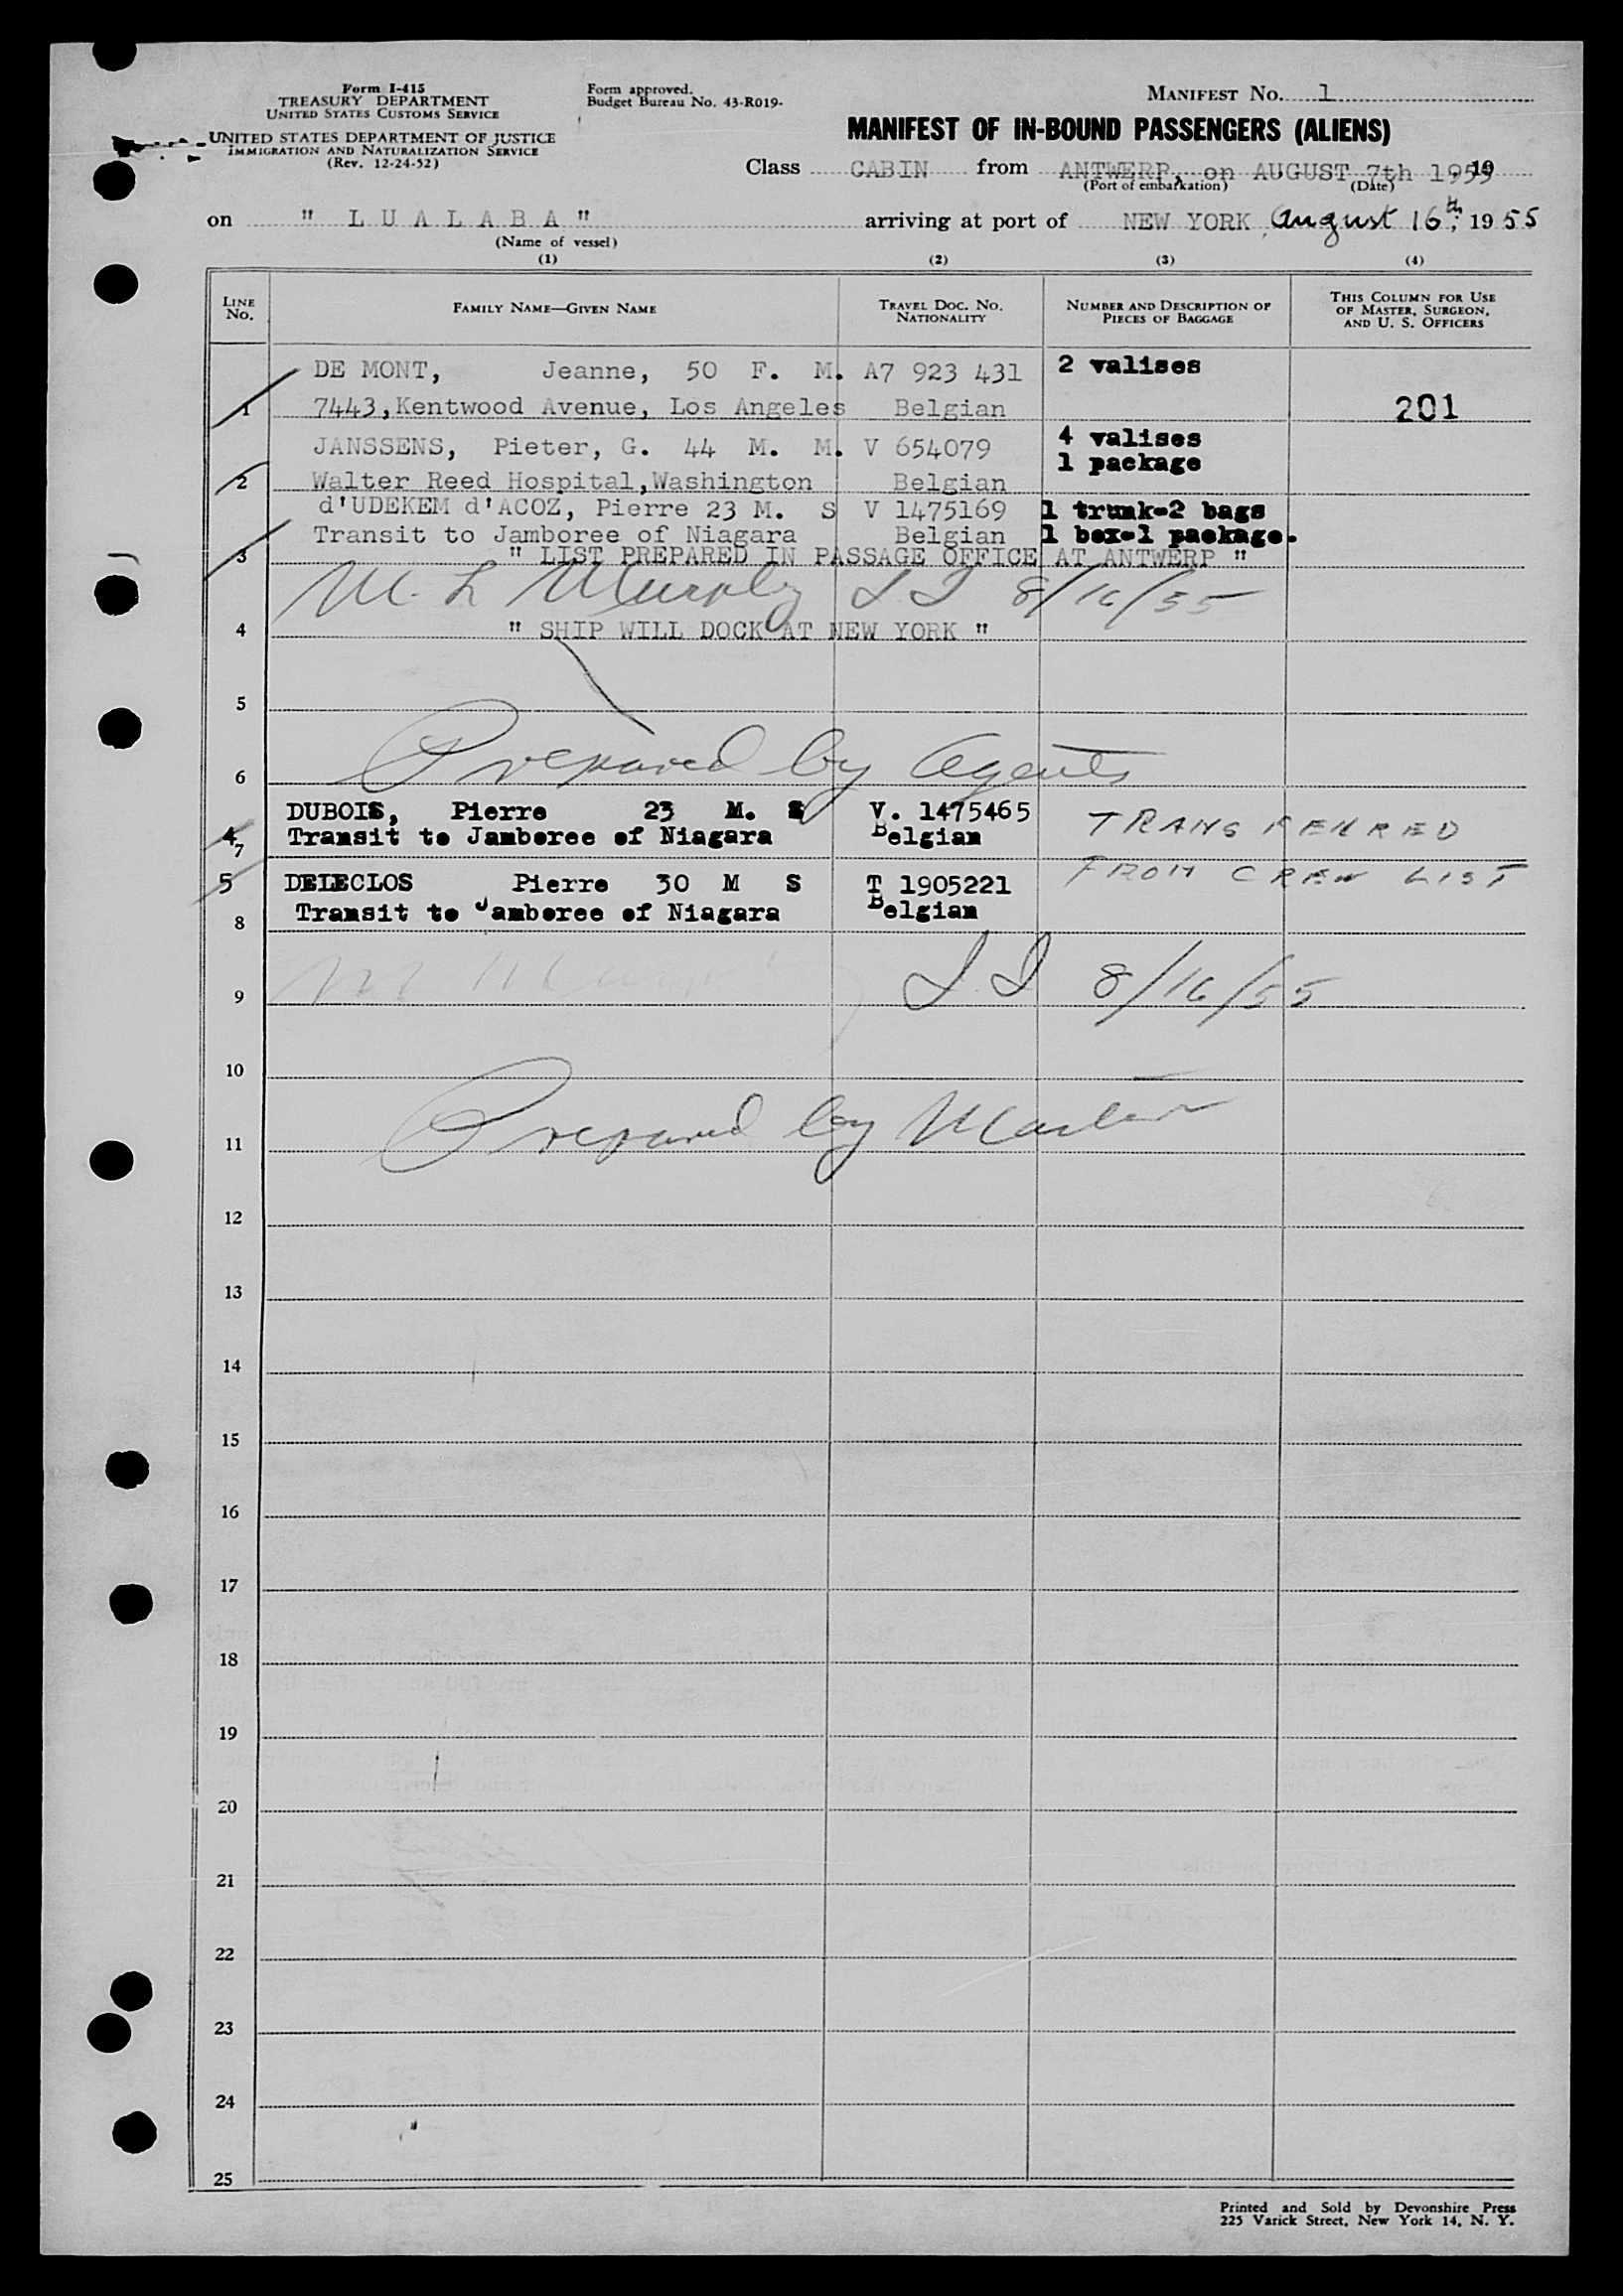 Form I-415
TREASURY DEPARTMENT
UNITED STATES CUSTOMS SERVICE
UNITED STATES DEPARTMENT OF JUSTICE
IMMIGRATION AND NATURALIZATION SERVICE
(Rev. 12-24-52)
Form approved.
Budget Bureau No. 43-R019-
MANIFEST No. 1
MANIFEST OF IN-BOUND PASSENGERS (ALIENS)
Class CABIN from ANTWERP, on AUGUST 7th 1955, 19
(Port of embarkation) (Date)
on " L U A L A B A " arriving at port of NEW YORK, August 16th, 1955
(Name of vessel)
(1) (2) (3) (4)
LINE No. FAMILY NAME—GIVEN NAME TRAVEL DOC. No. NATIONALITY NUMBER AND DESCRIPTION OF PIECES OF BAGGAGE THIS COLUMN FOR USE OF MASTER, SURGEON, AND U. S. OFFICERS
DE MONT, Jeanne, 50 F. M. A7 923 431 2 valises
1 7443,Kentwood Avenue, Los Angeles Belgian 201
JANSSENS, Pieter, G. 44 M. M. V 654079 4 valises
1 package
2 Walter Reed Hospital,Washington Belgian
d'UDEKEM d'ACOZ, Pierre 23 M. S V 1475169 1 trunk-2 bags
Transit to Jamboree of Niagara Belgian 1 box-1 package.
3 " LIST PREPARED IN PASSAGE OFFICE AT ANTWERP "
M. L Murphy I I 8/16/55
4 " SHIP WILL DOCK AT NEW YORK "
5
6 Prepared by Agents
DUBOIS, Pierre 23 M. S V. 1475465 TRANSFERRED
4 Transit to Jamboree of Niagara Belgian
7
FROM CREW LIST
5 DELECLOS Pierre 30 M S T 1905221
8 Transit to Jamboree of Niagara Belgian
9 I I 8/16/55
10
11 Prepared by Master
12
13
14
15
16
17
18
19
20
21
22
23
24
25
Printed and Sold by Devonshire Press
225 Varick Street, New York 14, N. Y.